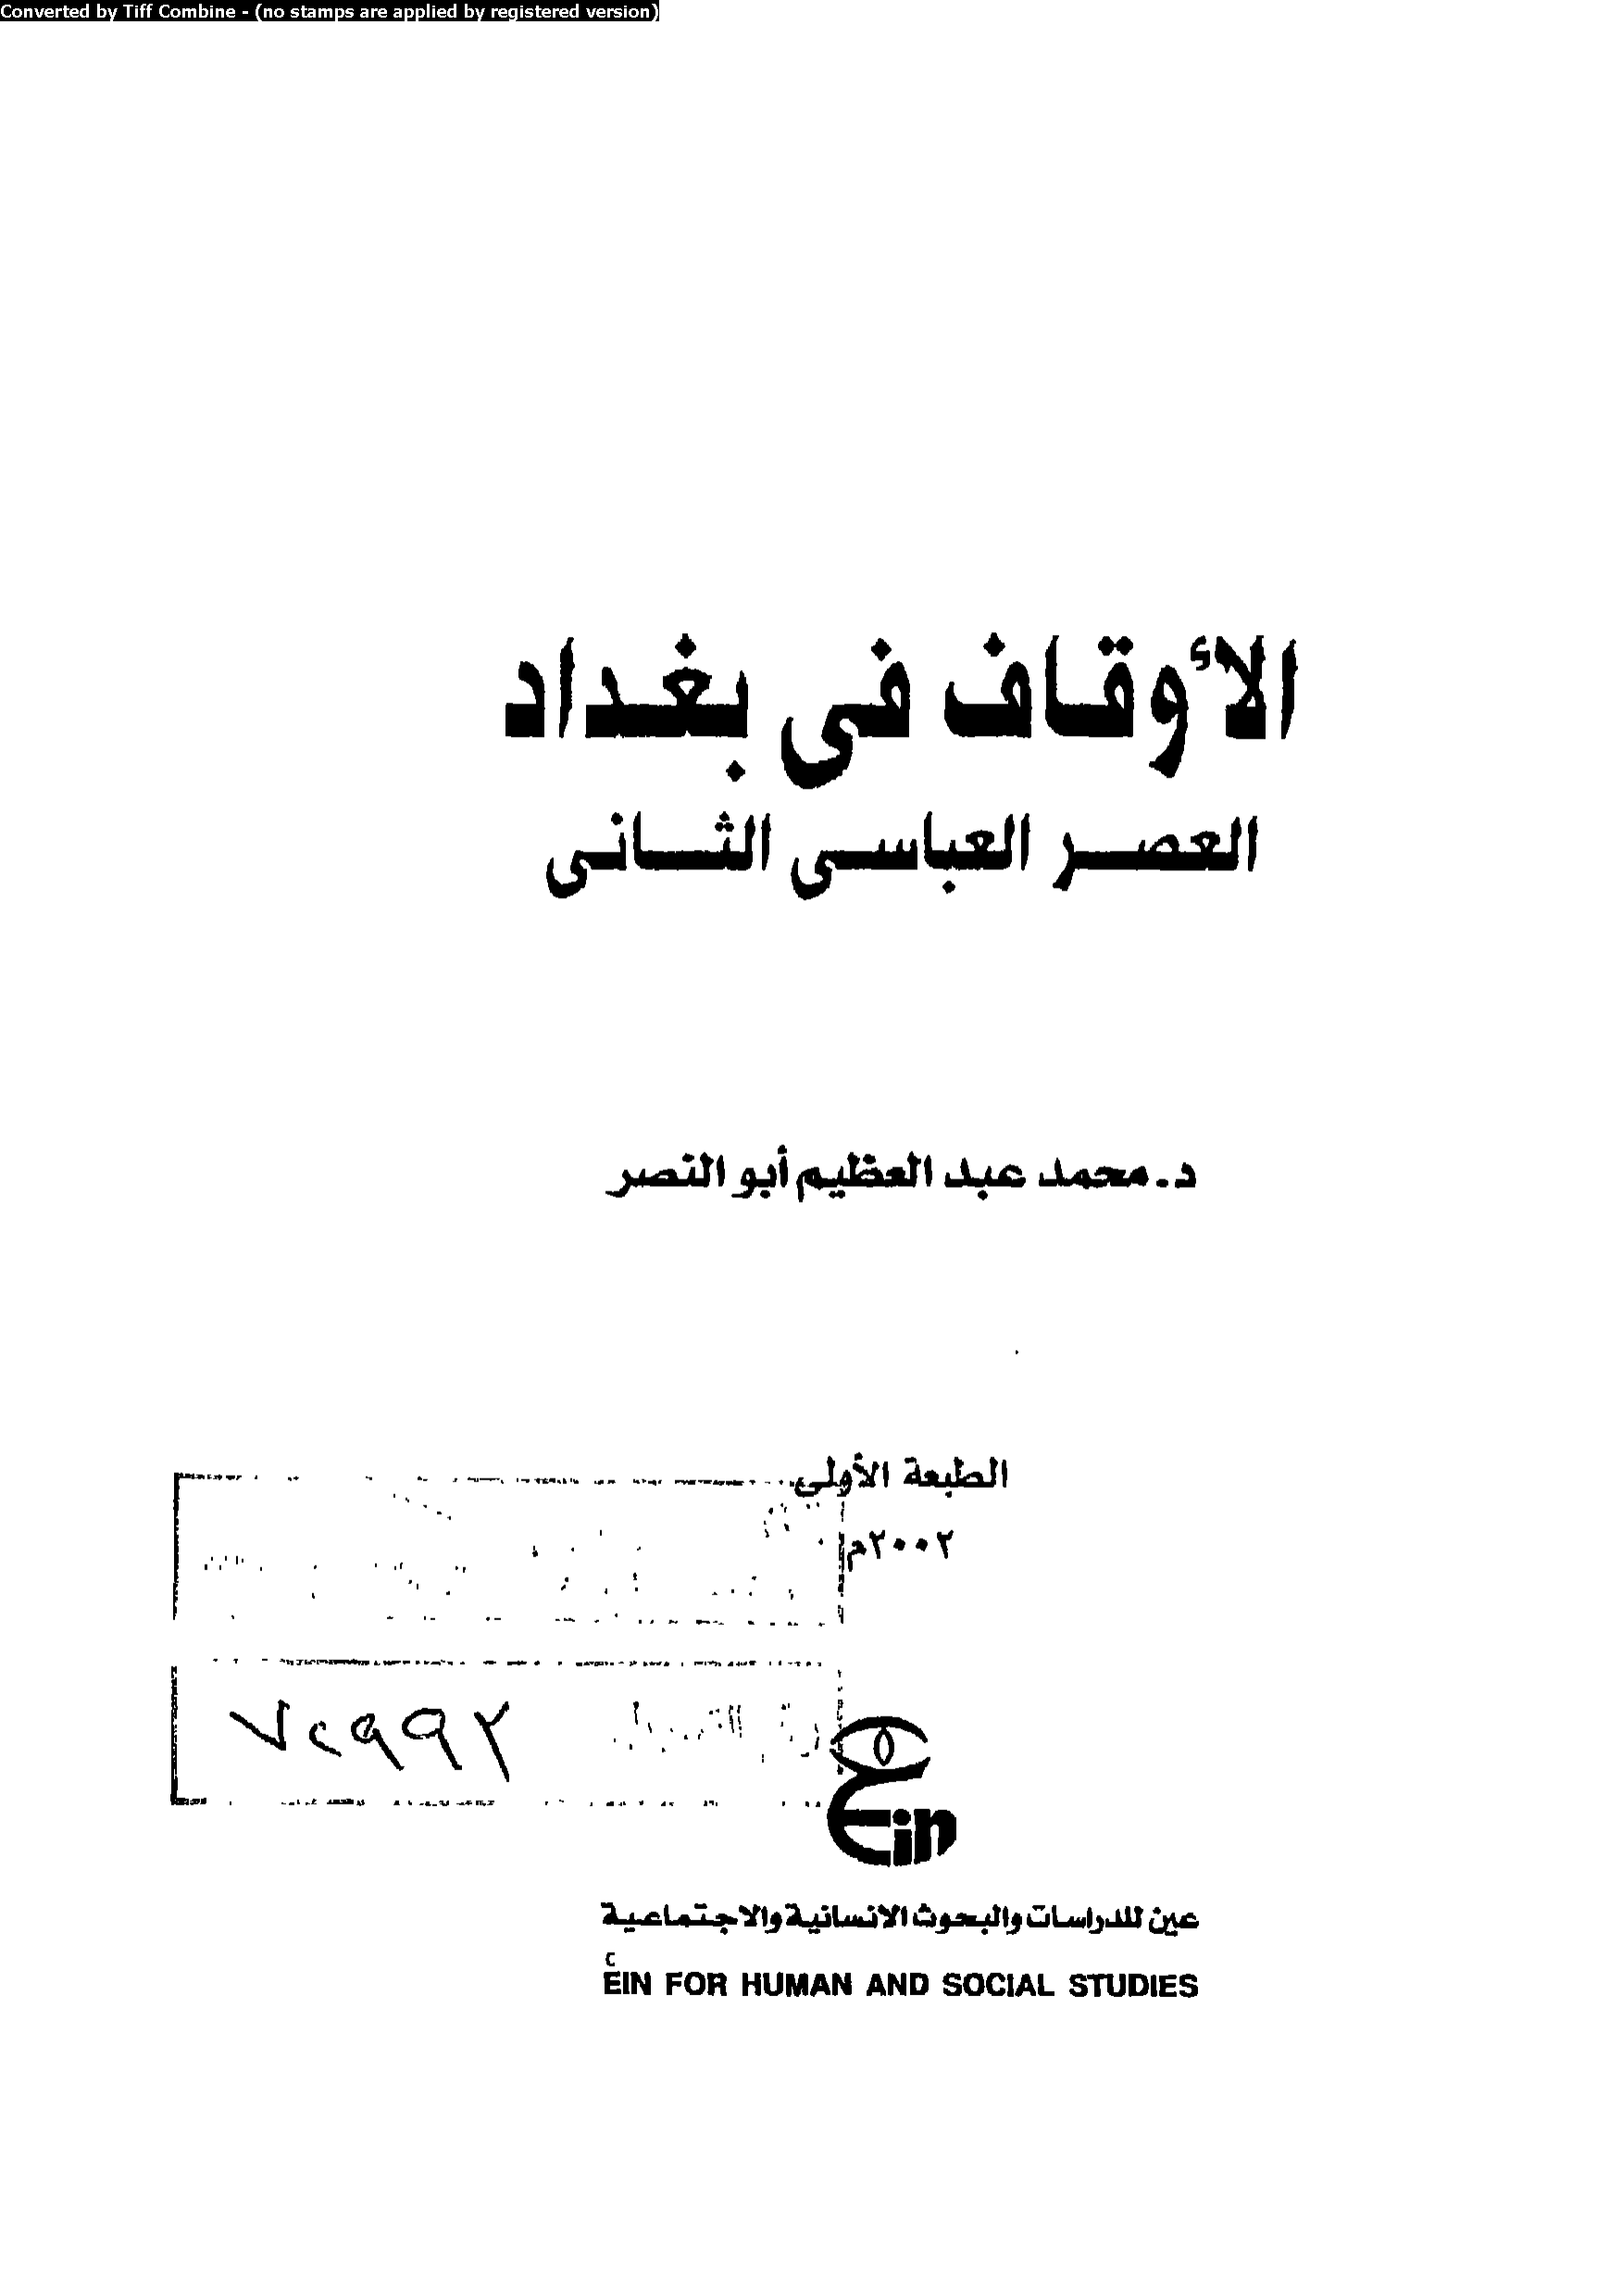 Converted by Tiff Combine - (no stamps are applied by registered version)
الأوقاف فى بغداد
العصر العباسى الثانى
د. محمد عبد العظيم أبو النصر
الطبعة الأولى
٢٠٠٢م
Ein
عين للدراسات والبحوث الانسانية والاجتماعية
EIN FOR HUMAN AND SOCIAL STUDIES